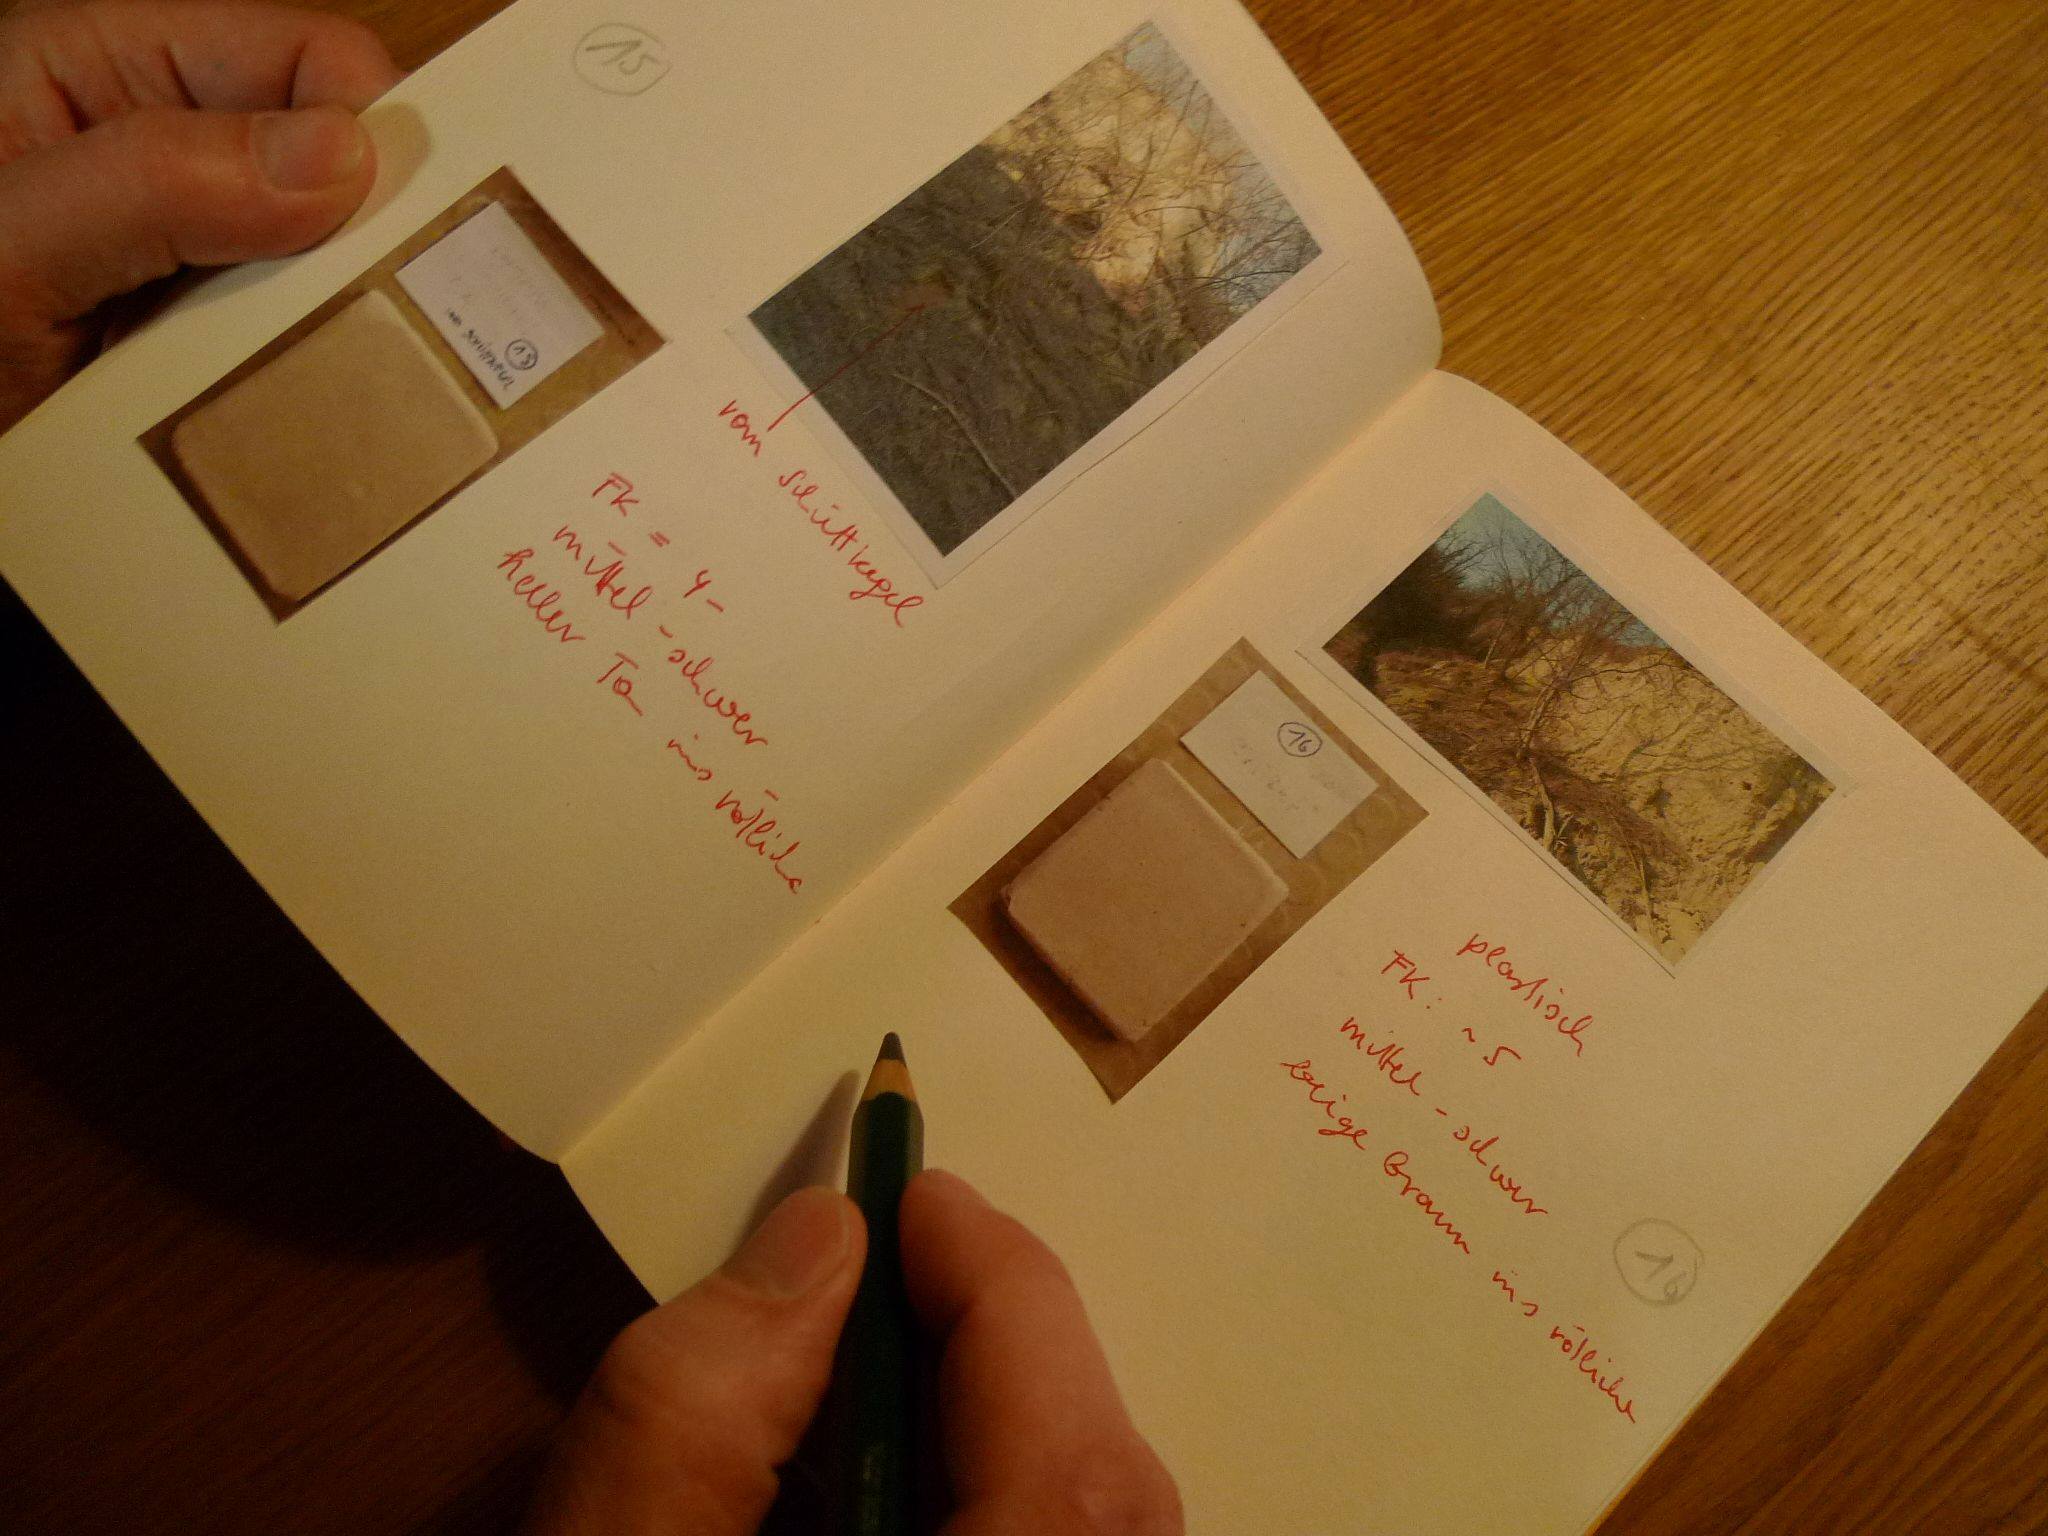 15
15
vom Schüttkegel
FK = 4-
mittel - schwer
heller Ton ins rötliche
16
plastisch
FK: ~5
mittel - schwer
beige Braun ins rötliche
16